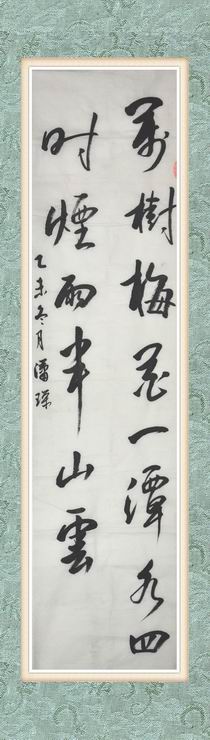 萬樹梅花一潭水四
时煙雨半山雲
乙未冬月潘